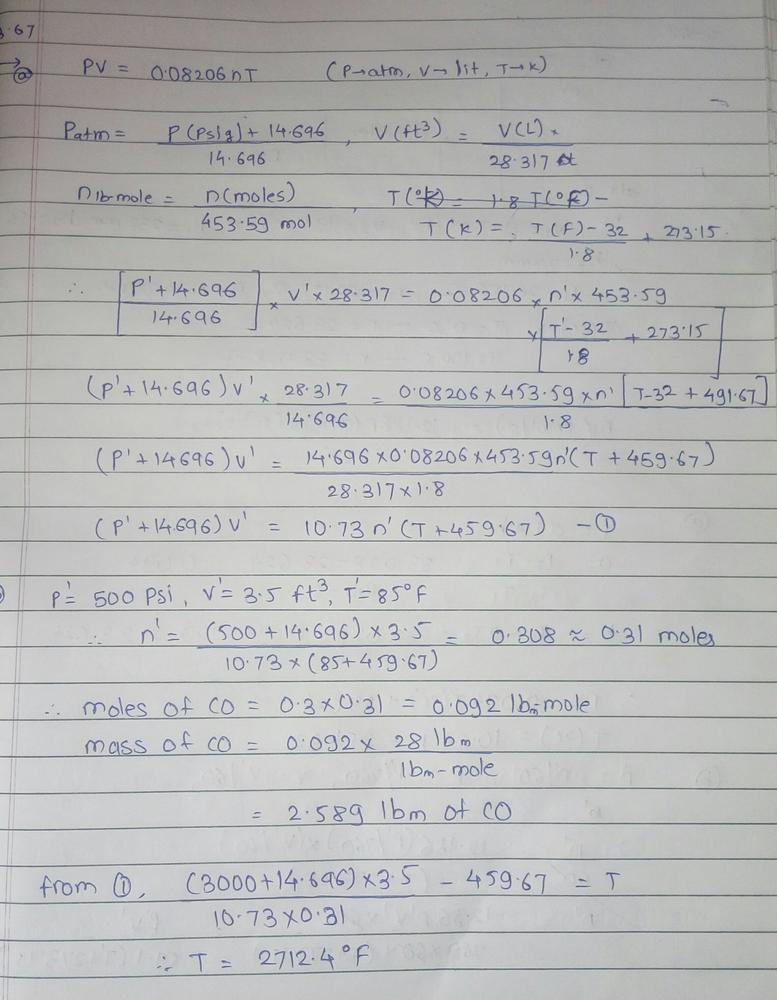 3.67
→ ⓐ PV = 0.08206 nT (P→atm, V→lit, T→K)
Patm = P(Psig) + 14.696 / 14.696 , V(ft³) = V(L) × / 28.317
n lb-mole = n(moles) / 453.59 mol , T(°K) = 1.8 T(°F) -
T(K) = T(F) - 32 / 1.8 + 273.15
∴ [P' + 14.696 / 14.696] × V' × 28.317 = 0.08206 × n' × 453.59
× [T' - 32 / 1.8 + 273.15]
(P' + 14.696) V' × 28.317 / 14.696 = 0.08206 × 453.59 × n' [T-32 + 491.67] / 1.8
(P' + 14696) V' = 14.696 × 0.08206 × 453.59 n' (T + 459.67) / 28.317 × 1.8
(P' + 14.696) V' = 10.73 n' (T + 459.67) - ①
P' = 500 Psi, V' = 3.5 ft³, T' = 85°F
∴ n' = (500 + 14.696) × 3.5 / 10.73 × (85 + 459.67) = 0.308 ≈ 0.31 moles
∴ moles of CO = 0.3 × 0.31 = 0.092 lbm-mole
mass of CO = 0.092 × 28 lbm / lbm-mole
= 2.589 lbm of CO
from ①, (3000 + 14.696) × 3.5 / 10.73 × 0.31 - 459.67 = T
∴ T = 2712.4°F